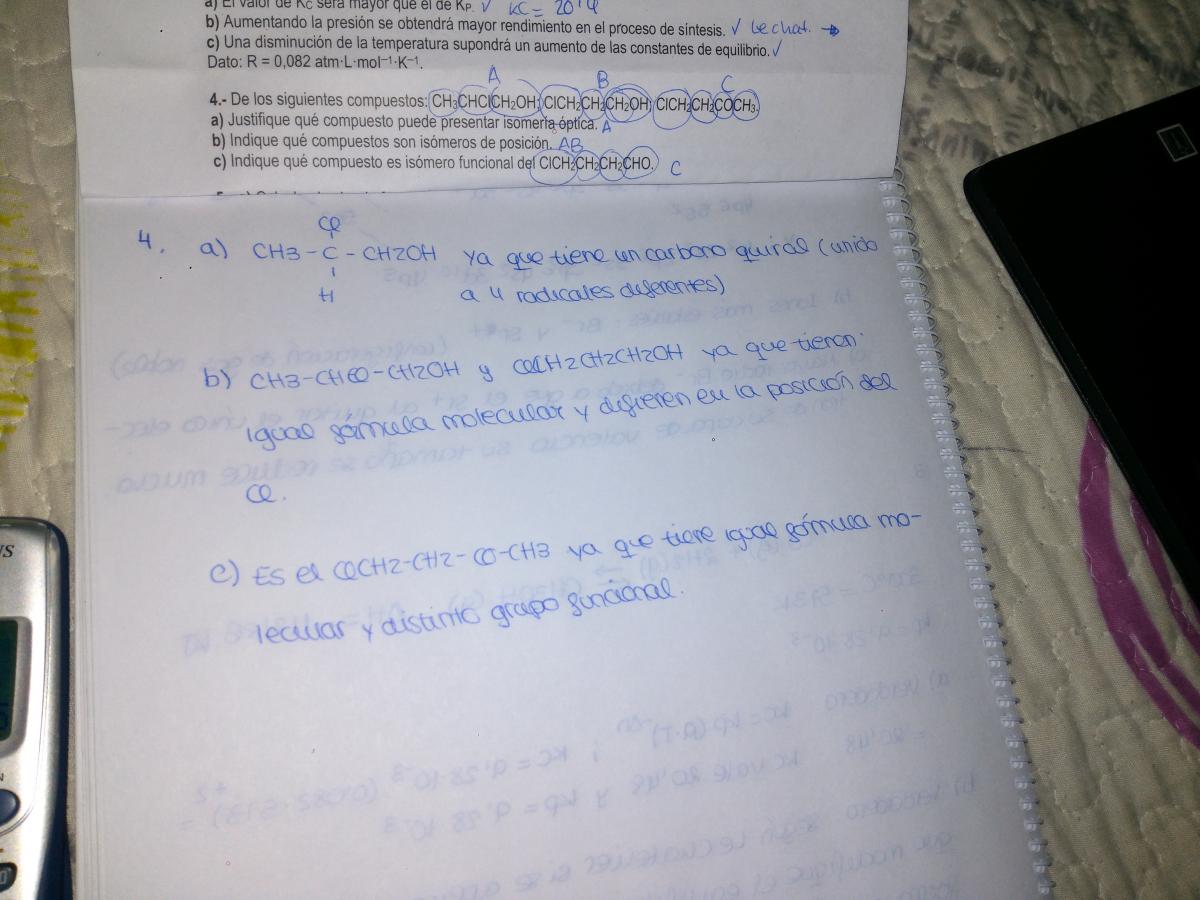 a) El valor de KC será mayor que el de KP. ✓ KC = 20'4
b) Aumentando la presión se obtendrá mayor rendimiento en el proceso de síntesis. ✓ Lechat. →
c) Una disminución de la temperatura supondrá un aumento de las constantes de equilibrio. ✓
Dato: R = 0,082 atm·L·mol⁻¹·K⁻¹.
A B C
4.- De los siguientes compuestos: CH₃CHClCH₂OH; ClCH₂CH₂CH₂OH; ClCH₂CH₂COCH₃.
a) Justifique qué compuesto puede presentar isomería óptica. A
b) Indique qué compuestos son isómeros de posición. AB
c) Indique qué compuesto es isómero funcional del ClCH₂CH₂CH₂CHO. C
Cl
4. a) CH3 - C - CH2OH ya que tiene un carbono quiral (unido
H a 4 radicales diferentes)
b) CH3-CHCl-CH2OH y ClCH2CH2CH2OH ya que tienen
igual fórmula molecular y difieren en la posición del
Cl.
c) Es el ClCH2-CH2-CO-CH3 ya que tiene igual fórmula mo-
lecular y distinto grupo funcional.